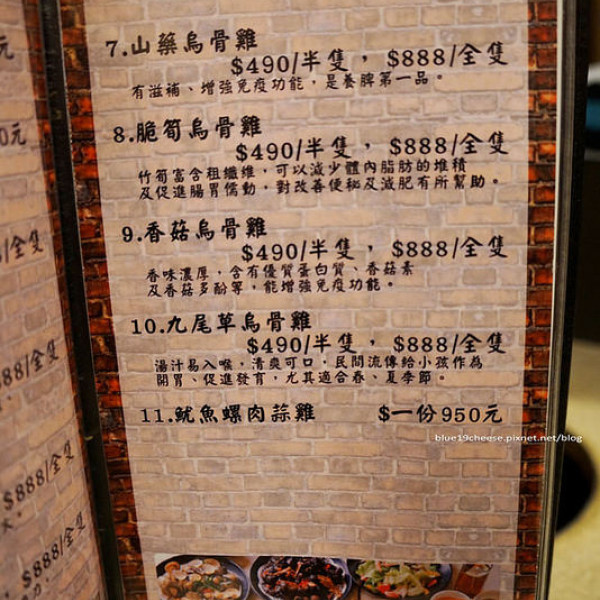 元
0元
/全隻
888/全隻
$888/全隻
$888/全隻
7.山藥烏骨雞
$490/半隻，$888/全隻
有滋補、增強免疫功能，是養脾第一品。
8.脆筍烏骨雞
$490/半隻，$888/全隻
竹筍富含粗纖維，可以減少體內脂肪的堆積
及促進腸胃儒動，對改善便秘及減肥有所幫助。
9.香菇烏骨雞
$490/半隻，$888/全隻
香味濃厚，含有優質蛋白質、香菇素
及香菇多酚等，能增強免疫功能。
10.九尾草烏骨雞
$490/半隻，$888/全隻
湯汁易入喉，清爽可口，民間流傳給小孩作為
開胃、促進發育，尤其適合春、夏季節。
11.魷魚螺肉蒜雞 $一份950元
blue19cheese.pixnet.net/blog